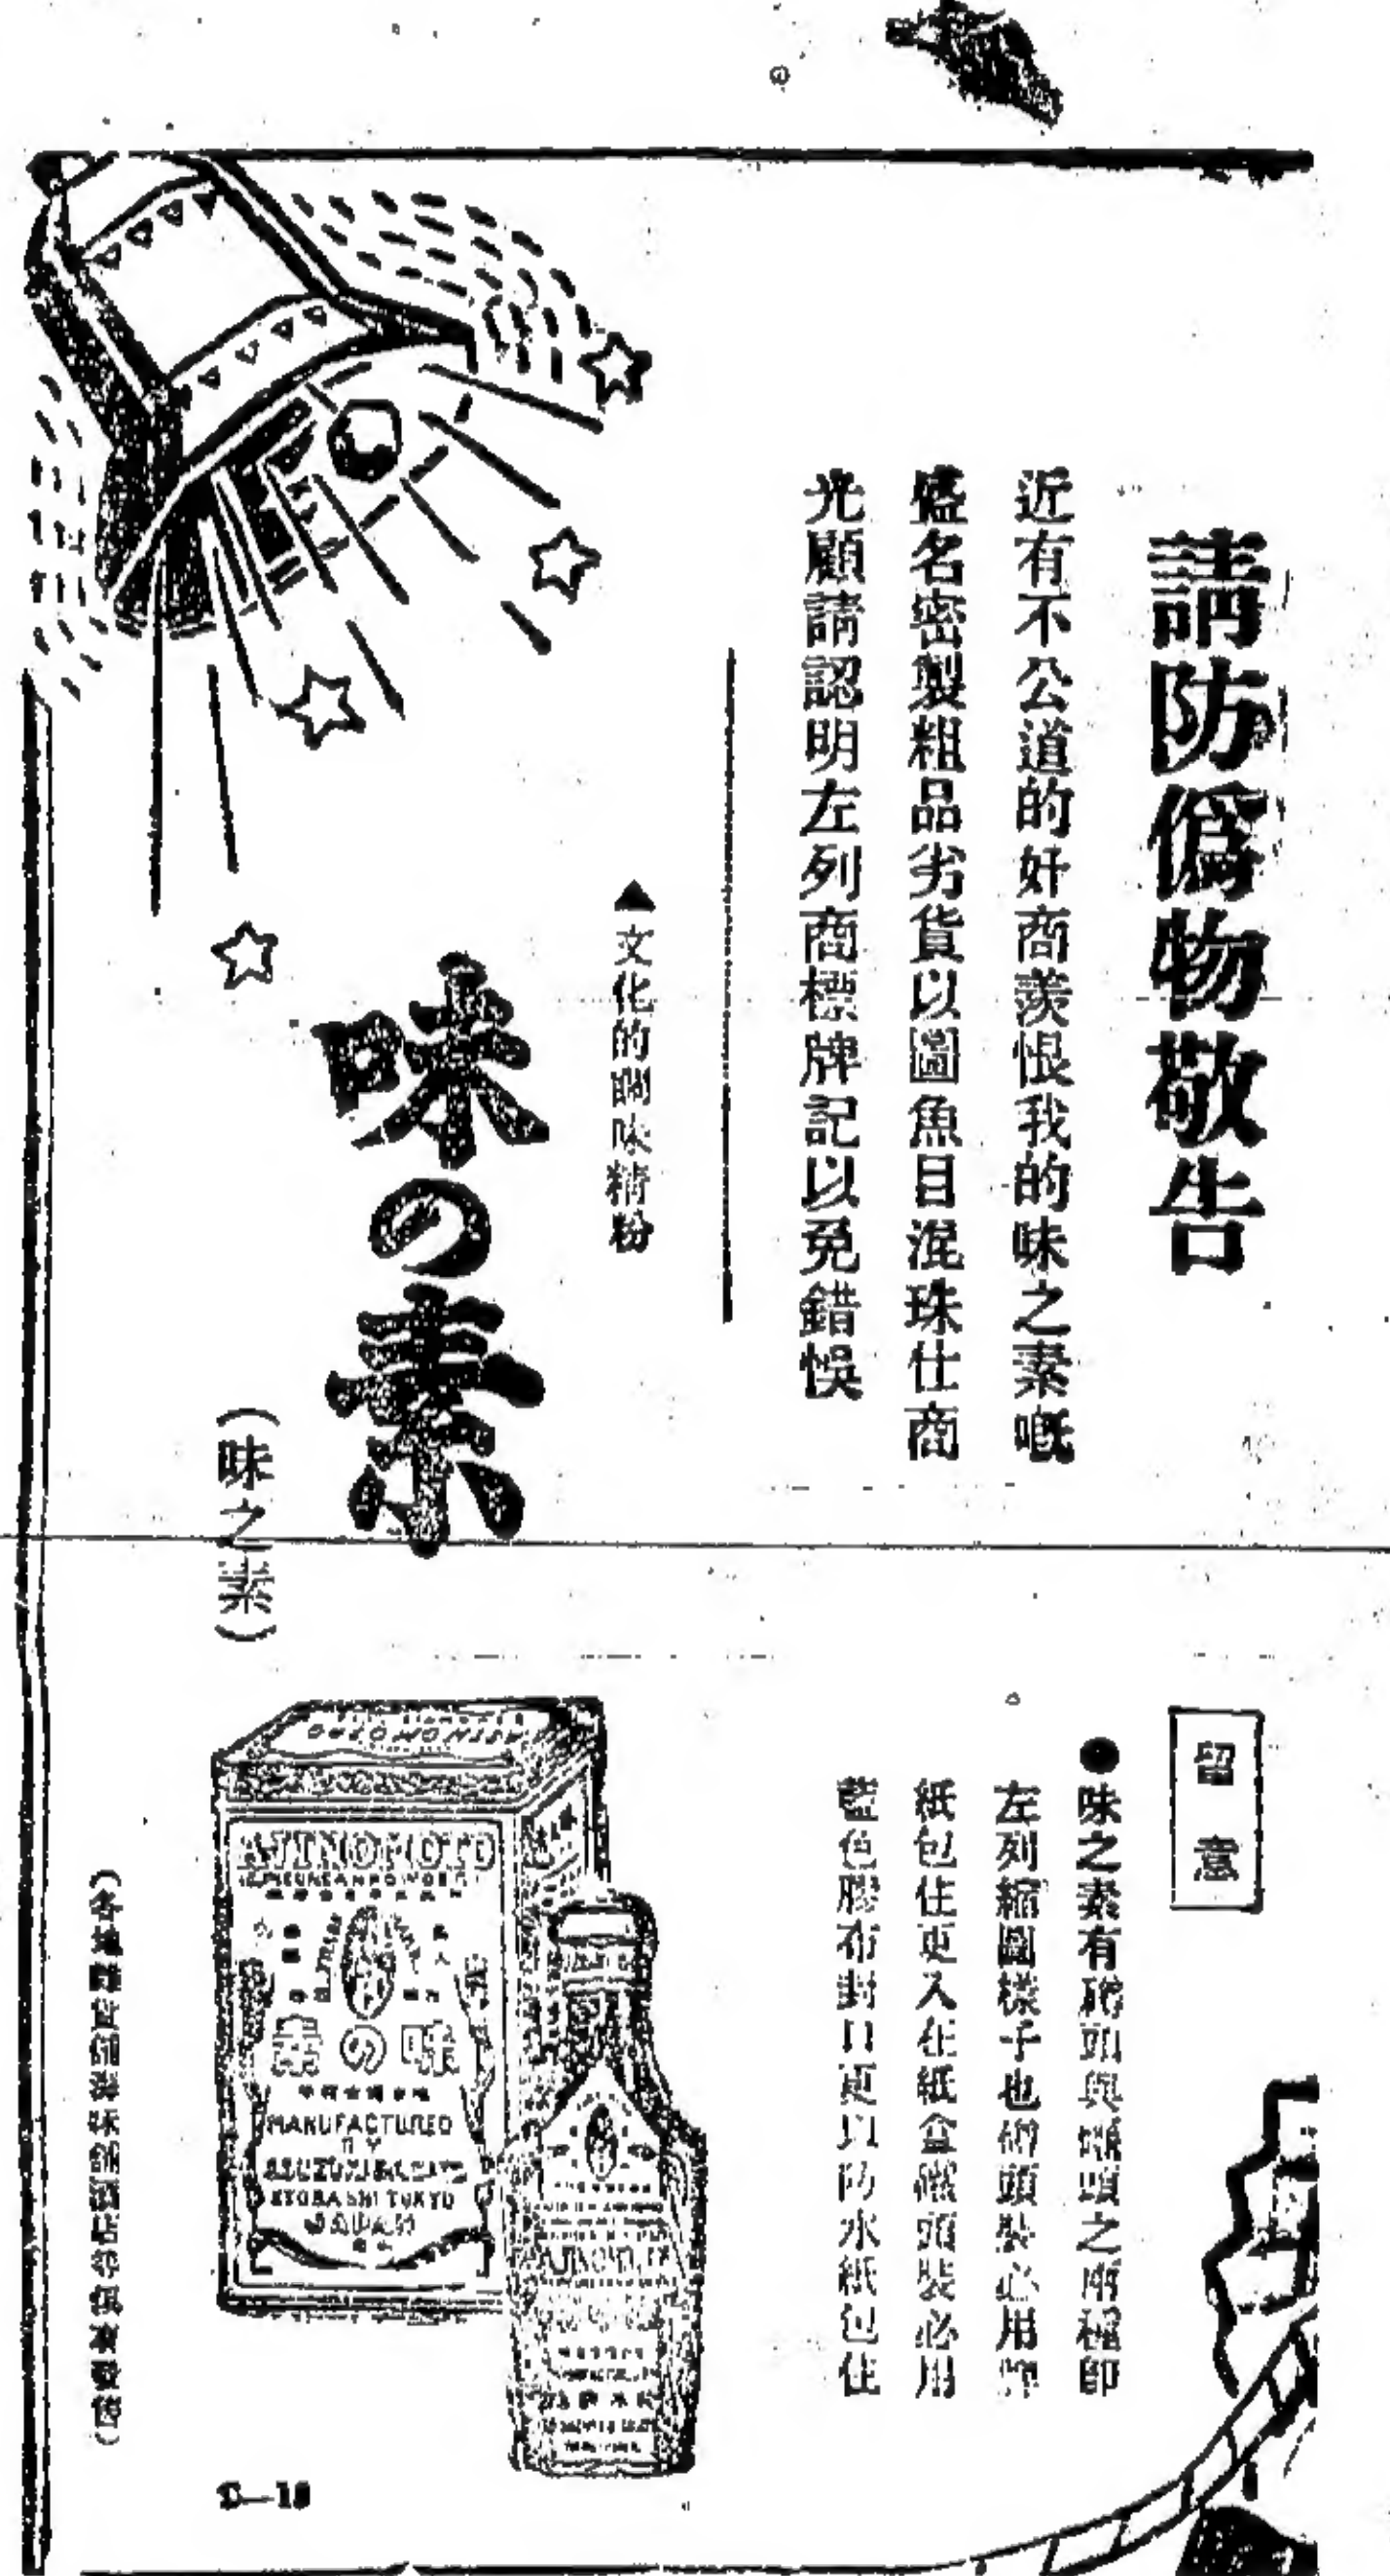 請防偽物敬告
近有不公道的奸商羨恨我的味之素嘅
盛名密製粗品劣貨以圖魚目混珠仕商
光顧請認明左列商標牌記以免錯悞
▲文化的調味精粉
味の素
(味之素)
留意
●味之素有 與罐頭之兩種即
左列縮圖樣子也 頭裝必用
紙包住更入在紙盒罐頭裝必用
藍色膠布封口更以防水紙包住
AJINOMOTO
素の味
MANUFACTURED
BY
KYOBASHI TOKYO
JAPAN